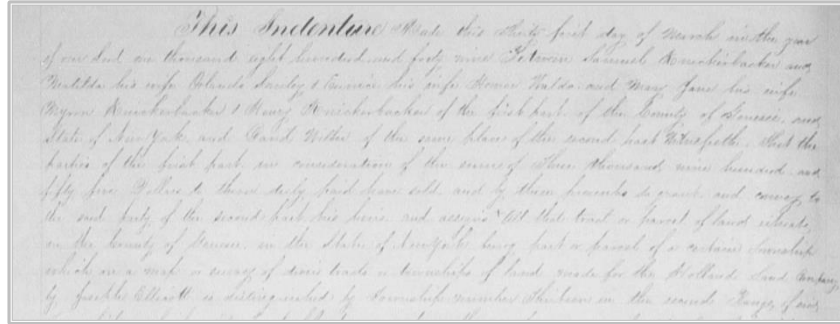 This Indenture Made this thirty first day of March in the year
of our Lord one thousand eight hundred and forty nine Between Samuel Knickerbacker and
Matilda his wife Orlando Stanley & Eunice his wife Homer Waldo and Mary Jane his wife
Myron Knickerbacker & Henry Knickerbacker of the first part of the County of Genesee and
State of New York and David Wilber of the same place of the second part Witnesseth, That the
parties of the first part in consideration of the sum of Three thousand nine hundred and
fifty five Dollars to them duly paid have sold and by these presents do grant and convey to
the said party of the second part his heirs and assigns All that tract or parcel of land situate
in the County of Genesee in the State of New York being part or parcel of a certain township
which on a map or survey of divers tracts or townships of land made for the Holland Land Company
by Joseph Ellicott is distinguished by Township number Thirteen in the second Range of said